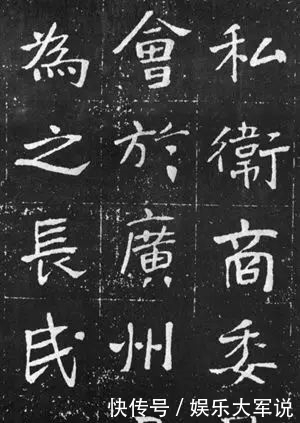 私衛商委
會於廣州
為之長民
快传号/娱乐大军说